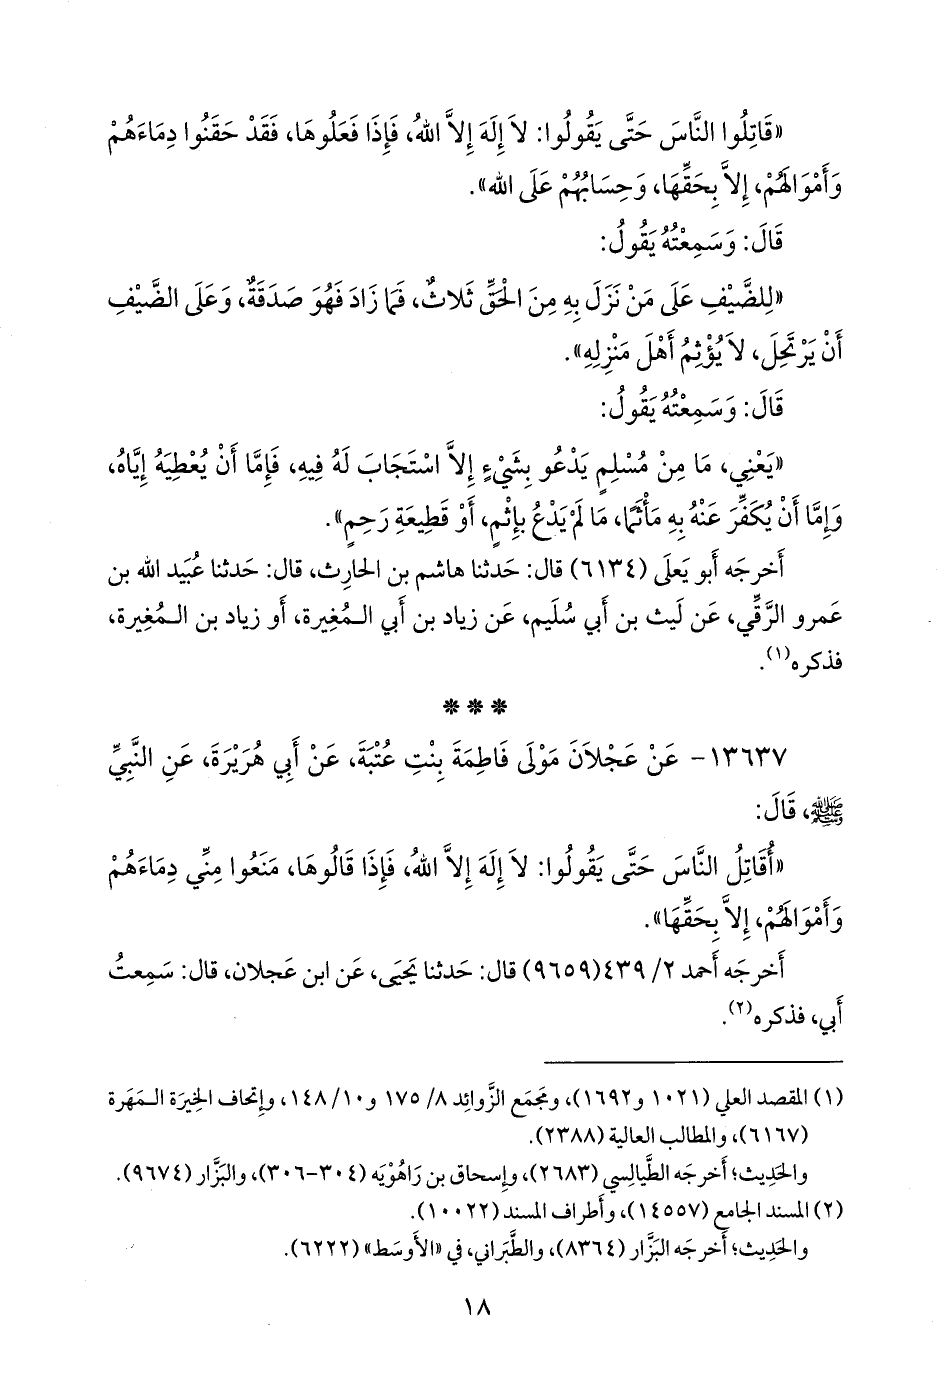 «قَاتِلُوا النَّاسَ حَتَّى يَقُولُوا: لاَ إِلَهَ إِلاَّ اللهُ، فَإِذَا فَعَلُوهَا، فَقَدْ حَقَنُوا دِمَاءَهُمْ
وَأَمْوَالَهُمْ، إِلاَّ بِحَقِّهَا، وَحِسَابُهُمْ عَلَى الله».
قَالَ: وَسَمِعْتُهُ يَقُولُ:
«لِلضَّيْفِ عَلَى مَنْ نَزَلَ بِهِ مِنَ الْحَقِّ ثَلاَثٌ، فَمَا زَادَ فَهُوَ صَدَقَةٌ، وَعَلَى الضَّيْفِ
أَنْ يَرْتَحِلَ، لاَ يُؤْثِمُ أَهْلَ مَنْزِلِهِ».
قَالَ: وَسَمِعْتُهُ يَقُولُ:
«يَعْنِي، مَا مِنْ مُسْلِمٍ يَدْعُو بِشَيْءٍ إِلاَّ اسْتَجَابَ لَهُ فِيهِ، فَإِمَّا أَنْ يُعْطِيَهُ إِيَّاهُ،
وَإِمَّا أَنْ يُكَفِّرَ عَنْهُ بِهِ مَأْثَمًا، مَا لَمْ يَدْعُ بِإِثْمٍ، أَوْ قَطِيعَةِ رَحِمٍ».
أَخرجَه أَبو يَعلَى (٦١٣٤) قال: حَدثنا هاشم بن الحارِث، قال: حَدثنا عُبَيد الله بن
عَمرو الرَّقِّي، عَن لَيث بن أَبي سُلَيم، عَن زياد بن أَبي الـمُغِيرة، أَو زياد بن الـمُغِيرة،
فذكره(١).
* * *
١٣٦٣٧- عَنْ عَجْلاَنَ مَوْلَى فَاطِمَةَ بِنْتِ عُتْبَةَ، عَنْ أَبِي هُرَيْرَةَ، عَنِ النَّبِيِّ
ﷺ، قَالَ:
«أُقَاتِلُ النَّاسَ حَتَّى يَقُولُوا: لاَ إِلَهَ إِلاَّ اللهُ، فَإِذَا قَالُوهَا، مَنَعُوا مِنِّي دِمَاءَهُمْ
وَأَمْوَالَهُمْ، إِلاَّ بِحَقِّهَا».
أَخرجَه أَحمد ٢/ ٤٣٩(٩٦٥٩) قال: حَدثنا يَحيَى، عَن ابن عَجلان، قال: سَمِعتُ
أَبي، فذكره(٢).
(١) المقصد العلي (١٠٢١ و١٦٩٢)، ومَجمَع الزَّوائِد ٨/ ١٧٥ و١٠/ ١٤٨، وإتحاف الخِيرَة الـمَهَرة
(٦١٦٧)، والمطالب العالية (٢٣٨٨).
والحَدِيث؛ أَخرجَه الطَّيالِسي (٢٦٨٣)، وإسحاق بن رَاهُوْيَه (٣٠٤-٣٠٦)، والبَزَّار (٩٦٧٤).
(٢) المسند الجامع (١٤٥٥٧)، وأَطراف المسند (١٠٠٢٢).
والحَدِيث؛ أَخرجَه البَزَّار (٨٣٦٤)، والطَّبَراني، في «الأَوسَط» (٦٢٢٢).
١٨